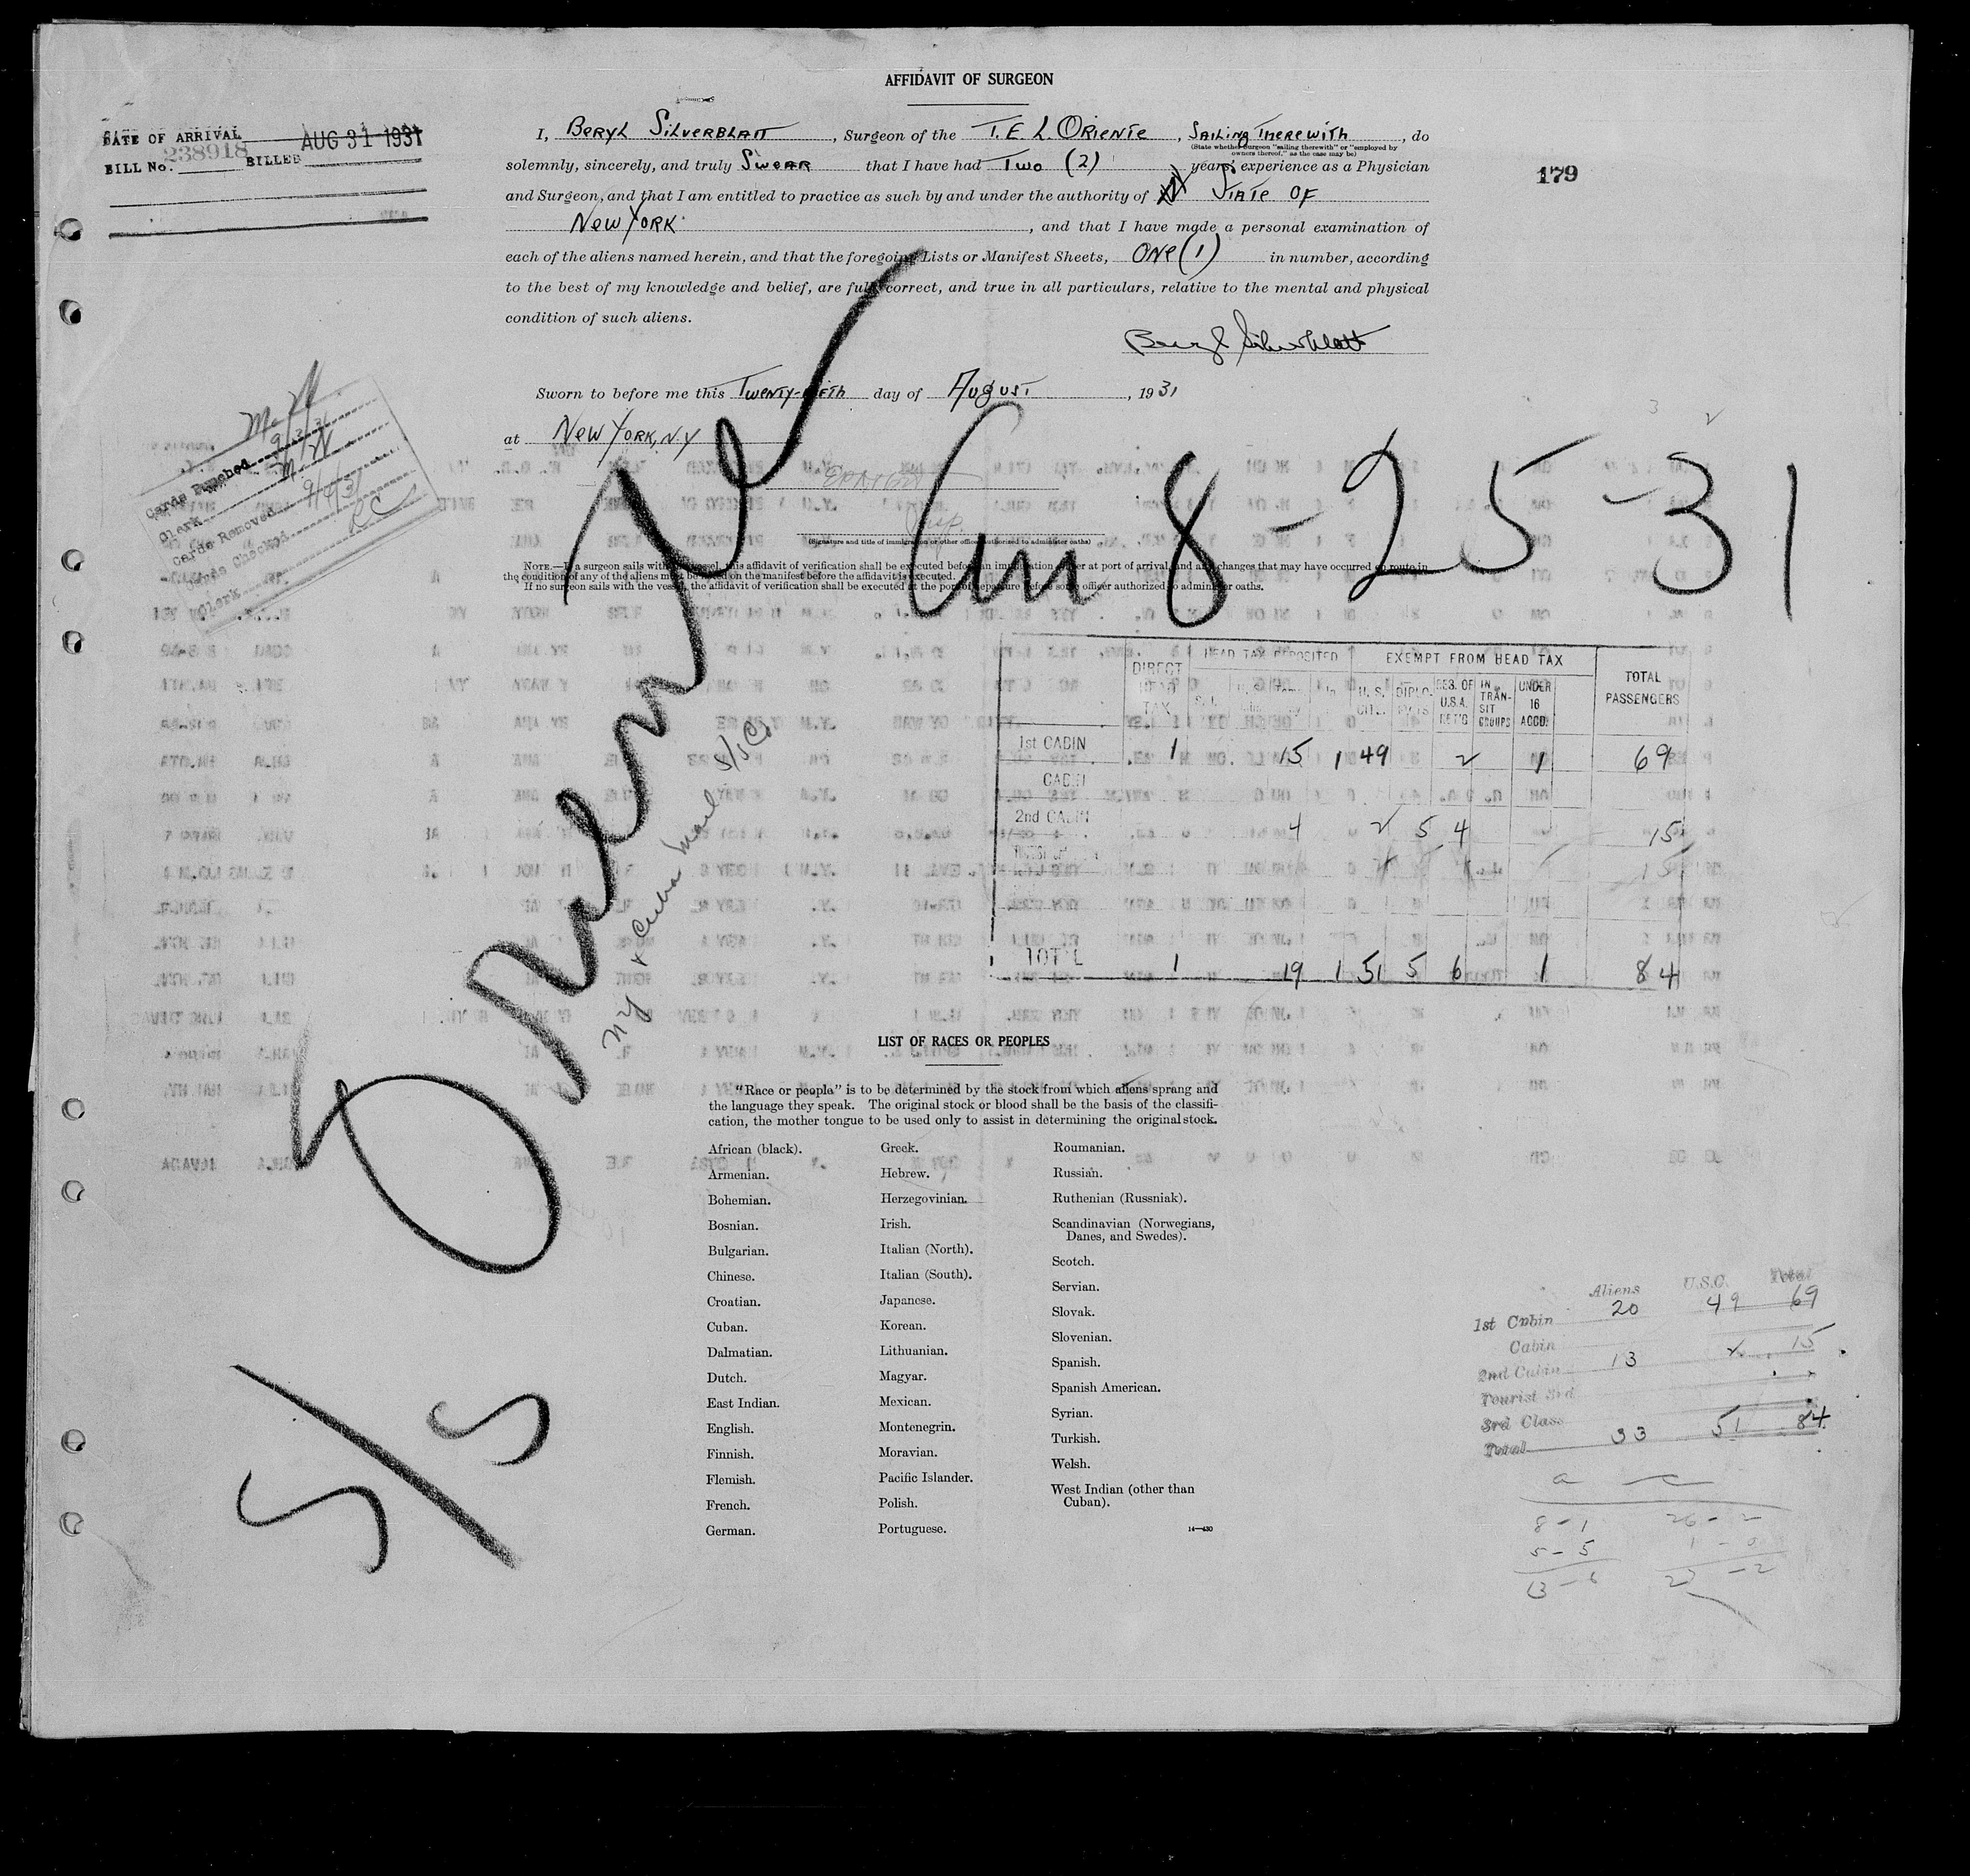 AFFIDAVIT OF SURGEON
DATE OF ARRIVAL
BILL No. 238918 BILLED AUG 31 1931
179
I, Beryl Silverblatt, Surgeon of the T.E.L. Oriente, Sailing Therewith, do
(State whether Surgeon "sailing therewith" or "employed by
owners thereof," as the case may be)
solemnly, sincerely, and truly Swear that I have had Two (2) years' experience as a Physician
and Surgeon, and that I am entitled to practice as such by and under the authority of State of
New York, and that I have made a personal examination of
each of the aliens named herein, and that the foregoing Lists or Manifest Sheets, One (1) in number, according
to the best of my knowledge and belief, are full, correct, and true in all particulars, relative to the mental and physical
condition of such aliens.
Beryl Silverblatt
Sworn to before me this Twenty-fifth day of August, 1931
at New York, NY
Insp.
(Signature and title of immigration or other officer authorized to administer oaths)
NOTE.—If a surgeon sails with the vessel, this affidavit of verification shall be executed before an immigration officer at port of arrival, and any changes that may have occurred en route in
the condition of any of the aliens must be noted on the manifest before the affidavit is executed.
If no surgeon sails with the vessel, the affidavit of verification shall be executed at the port of departure before some officer authorized to administer oaths.
Cards Punched 9/3/31
Clerk
Cards Removed
Cards Checked 9/4/31
Clerk RC
S/S Oriente
NY & Cuba Mail S/S Co
Arr 8-25-31
DIRECT HEAD TAX HEAD TAX DEPOSITED EXEMPT FROM HEAD TAX TOTAL PASSENGERS
U.S. CITZ. DIPLOMATS RES. OF U.S.A. RET'G IN TRANSIT GROUPS UNDER 16 ACCD.
1st CABIN 1 15 1 49 2 1 69
CABIN
2nd CABIN 4 2 5 4 15
TOTAL 1 19 1 51 5 6 1 84
LIST OF RACES OR PEOPLES
"Race or people" is to be determined by the stock from which aliens sprang and
the language they speak. The original stock or blood shall be the basis of the classifi-
cation, the mother tongue to be used only to assist in determining the original stock.
African (black).
Armenian.
Bohemian.
Bosnian.
Bulgarian.
Chinese.
Croatian.
Cuban.
Dalmatian.
Dutch.
East Indian.
English.
Finnish.
Flemish.
French.
German.
Greek.
Hebrew.
Herzegovinian.
Irish.
Italian (North).
Italian (South).
Japanese.
Korean.
Lithuanian.
Magyar.
Mexican.
Montenegrin.
Moravian.
Pacific Islander.
Polish.
Portuguese.
Roumanian.
Russian.
Ruthenian (Russniak).
Scandinavian (Norwegians,
Danes, and Swedes).
Scotch.
Servian.
Slovak.
Slovenian.
Spanish.
Spanish American.
Syrian.
Turkish.
Welsh.
West Indian (other than
Cuban).
14—430
Aliens U.S.C. Total
1st Cabin 20 49 69
Cabin
2nd Cabin 13 2 15
Tourist 3rd
3rd Class
Total 33 51 84
a c
8-1 26-2
5-5 1-0
13-6 27-2